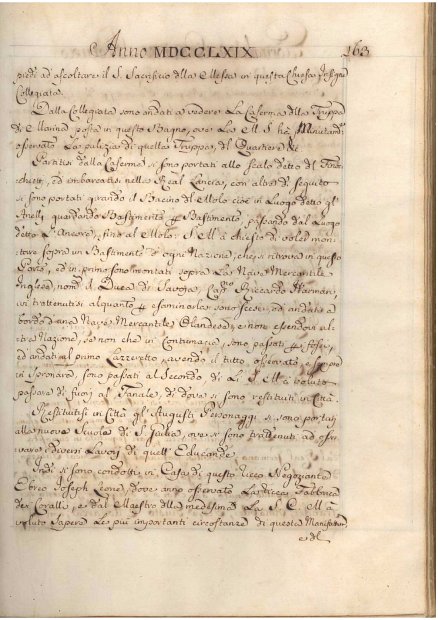 Anno MDCCLXIX 163
piedi ad ascoltare il S. Sacrificio della Messa in questa Chiesa
Collegiata.
Dalla Collegiata sono andati a vedere La Caserma della Truppa
di Marina posta in questo Bagno, ove Le M. S. ha
osservato La pulizia di quella Truppa, del Quartiere
Partitisi dalla Caserma si sono portati allo scalo detto del
ed imbarcatisi nella Real Lancia, con altre di seguito
si sono portati girando il Bacino del Molo cioè in Luogo detto gl'
Anelli guardando Bastimento per Bastimento, passando dal Luogo
detto L'Ancore, fino al Molo: S. M. à chiesto di voler mon
tare sopra un Bastimento d'ogni Nazione, che si ritrova in questo
Porto, ed in primo sono montati sopra La Nave Mercantile
Inglese, nom. il Duca di Savoja, Cap.no Riccardo Harman,
ivi trattenutisi alquanto per esaminarla sono scesi, ed andati a
bordo d'una Nave Mercantile Olandese, e non essendovi al
tra Nazione, se non che in Contumacia, sono passati per
ed andati al primo Lazzeretto, avendo il tutto osservato, e sempre
in sono passati al Secondo, di Lì S. M. à voluto
passare di fuori al Fanale, di dove si sono restituiti in Città.
Restituitisi in Città gl'Augusti Personaggi si sono portati
alla nuova Scuola di S. Giulia, ove si sono trattenuti ad osser
vare diversi Lavori di quell'Educande.
Indi si sono condotti in Casa di questo ricco Negoziante
Ebreo Joseph Leone, dove anno osservato La ricca Fabbrica
dei Coralli, e dal Maestro della medesima La S. C. M. à
voluto sapere Le più importanti circostanze di questa Manifattura
e dl